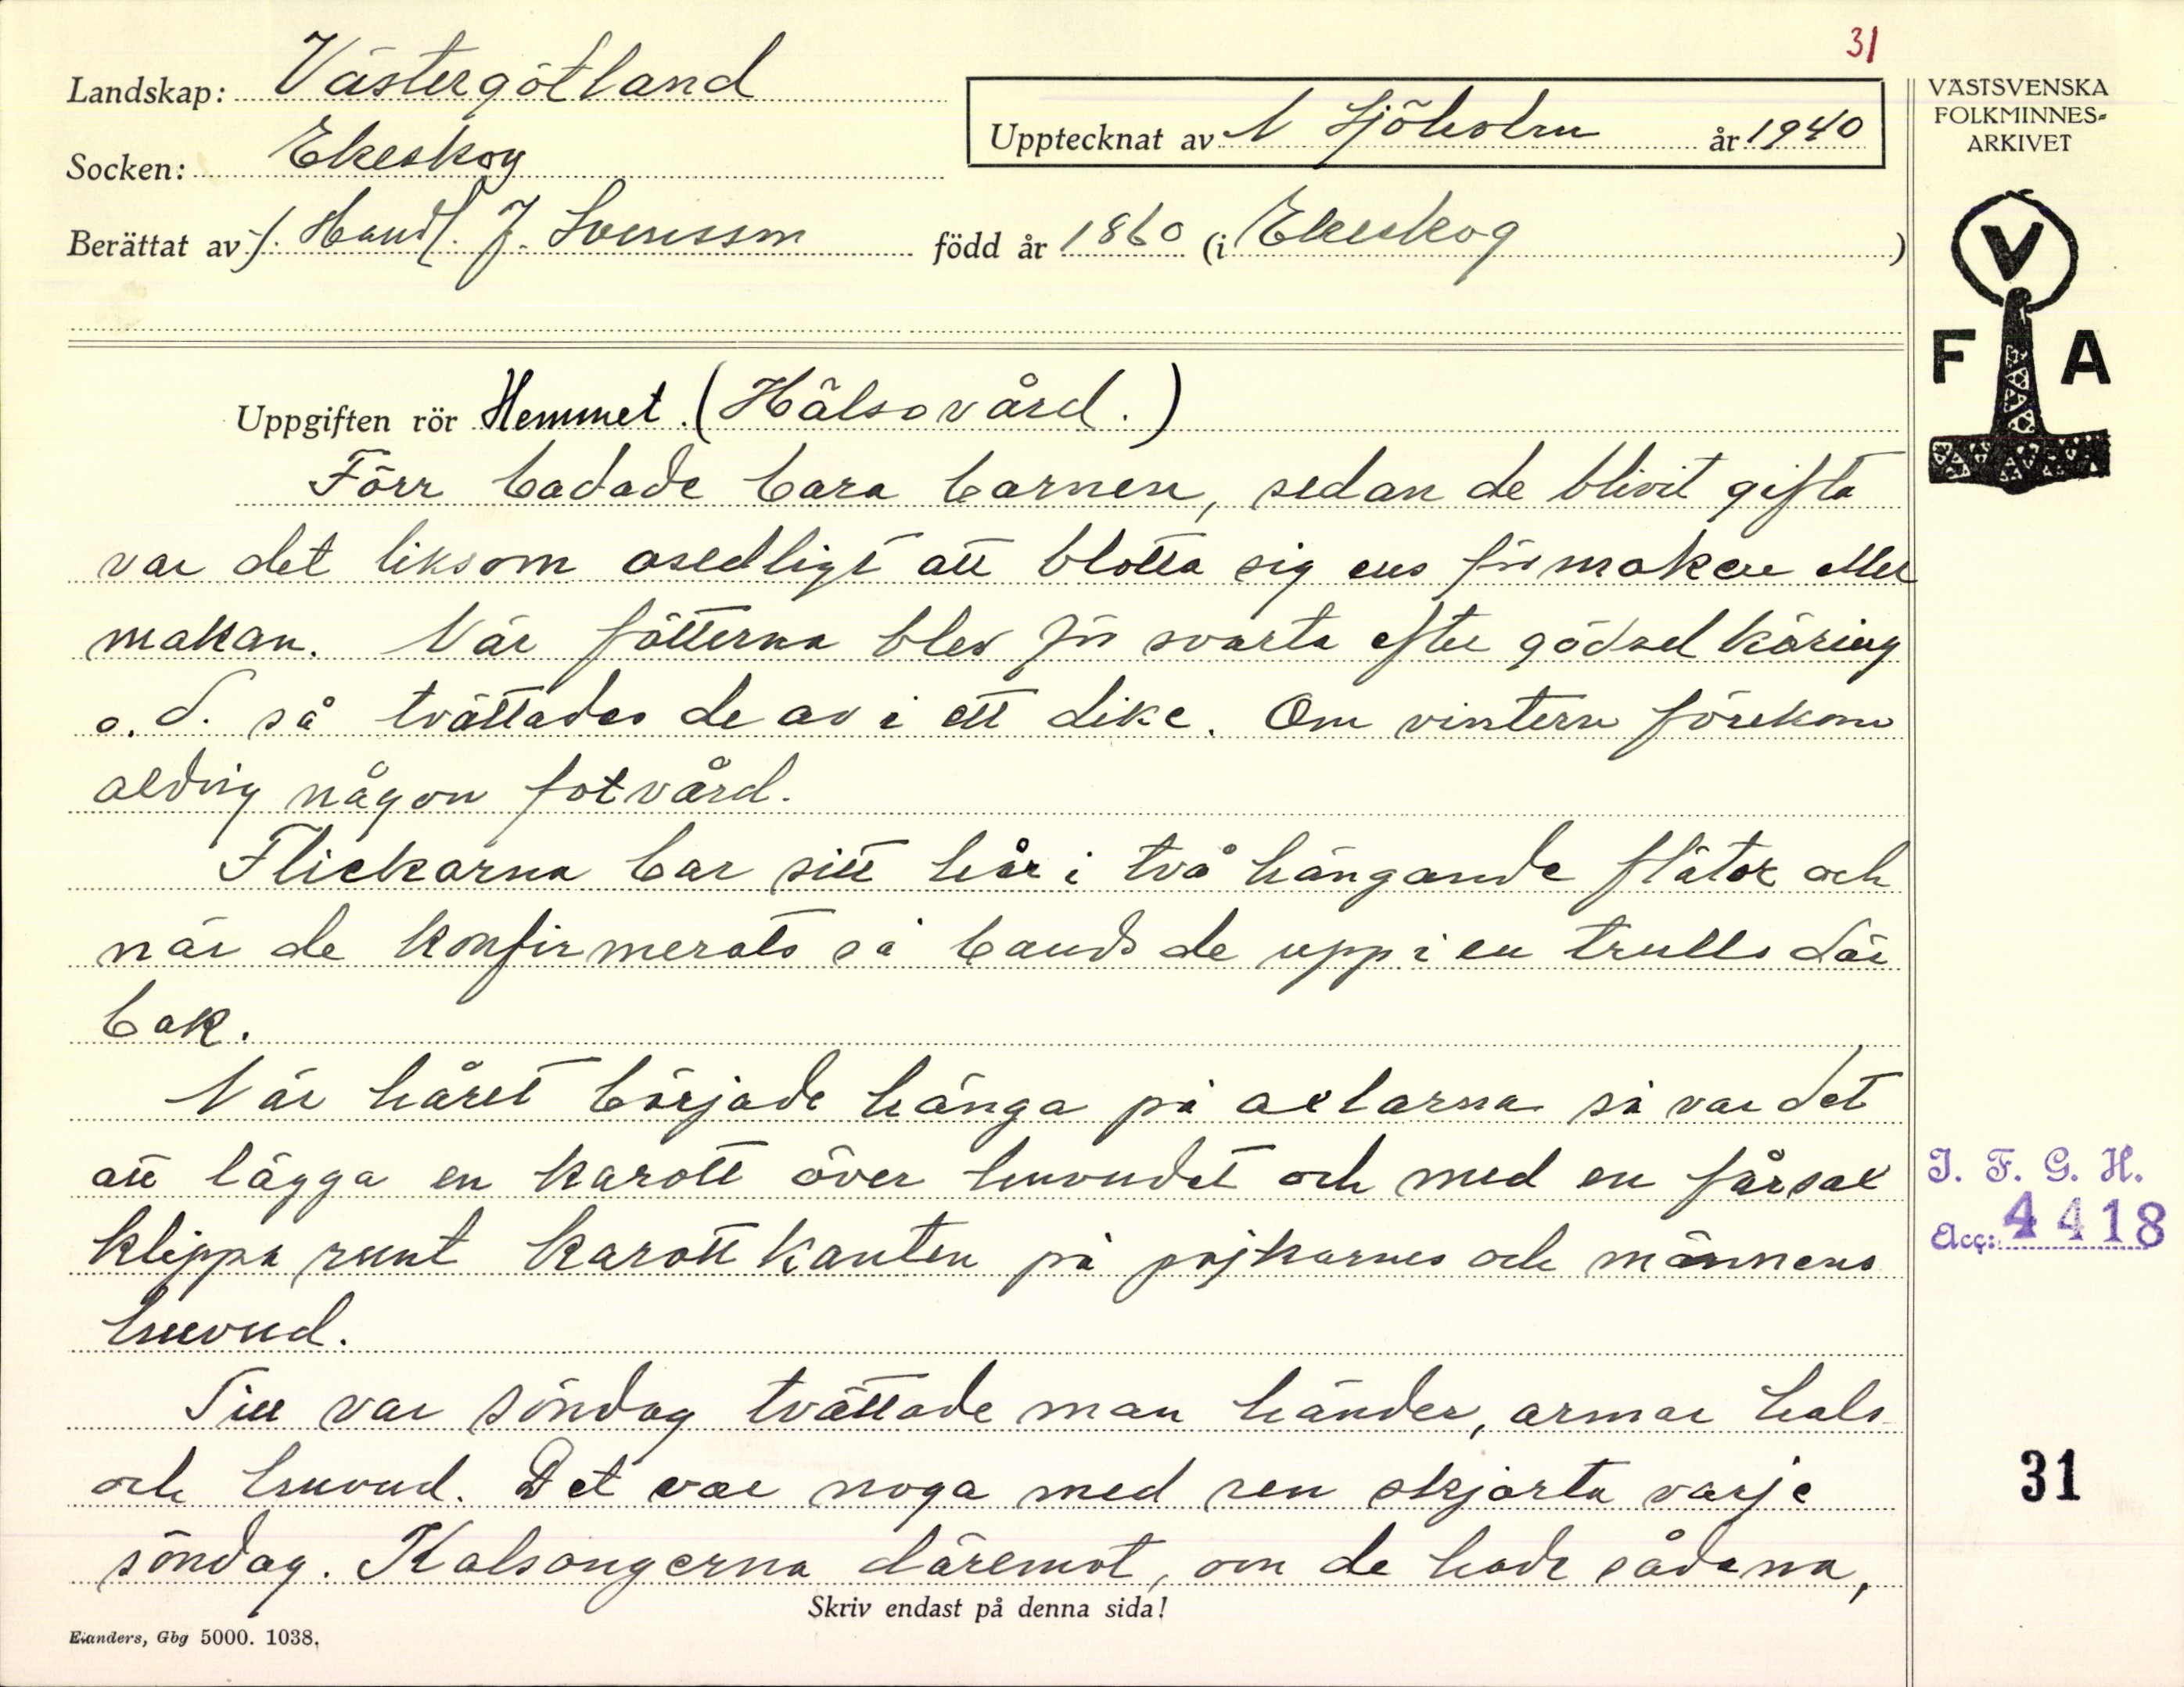 31
Landskap: Västergötland
Socken: Ekeskog
Upptecknat av N Sjöholm år 1940
Berättat av f. Handl. J. Svensson född år 1860 (i Ekeskog)
VÄSTSVENSKA
FOLKMINNES-
ARKIVET
V
F A
Uppgiften rör Hemmet. (Hälsovård.)
Förr badade bara barnen, sedan de blivit gifta
var det liksom osedligt att blotta sig ens för maken eller
makan. När fötterna blev för svarta efter gödselköring
o.d. så tvättades de av i ett dike. Om vintern förekom
aldrig någon fotvård.
Flickorna bar sitt hår i två hängande flätor och
när de konfirmerats så bands de upp i en trulls där
bak.
När håret började hänga på axlarna så var det
att lägga en karott över huvudet och med en fårsax
klippa runt karottkanten på pojkarnes och männens
huvud.
Till var söndag tvättade man händer, armar hals
och huvud. Det var noga med ren skjorta varje
söndag. Kalsongerna däremot, om de hade sådana,
Skriv endast på denna sida!
Elanders, Gbg 5000. 1038.
I. F. G. H.
Acc: 4418
31